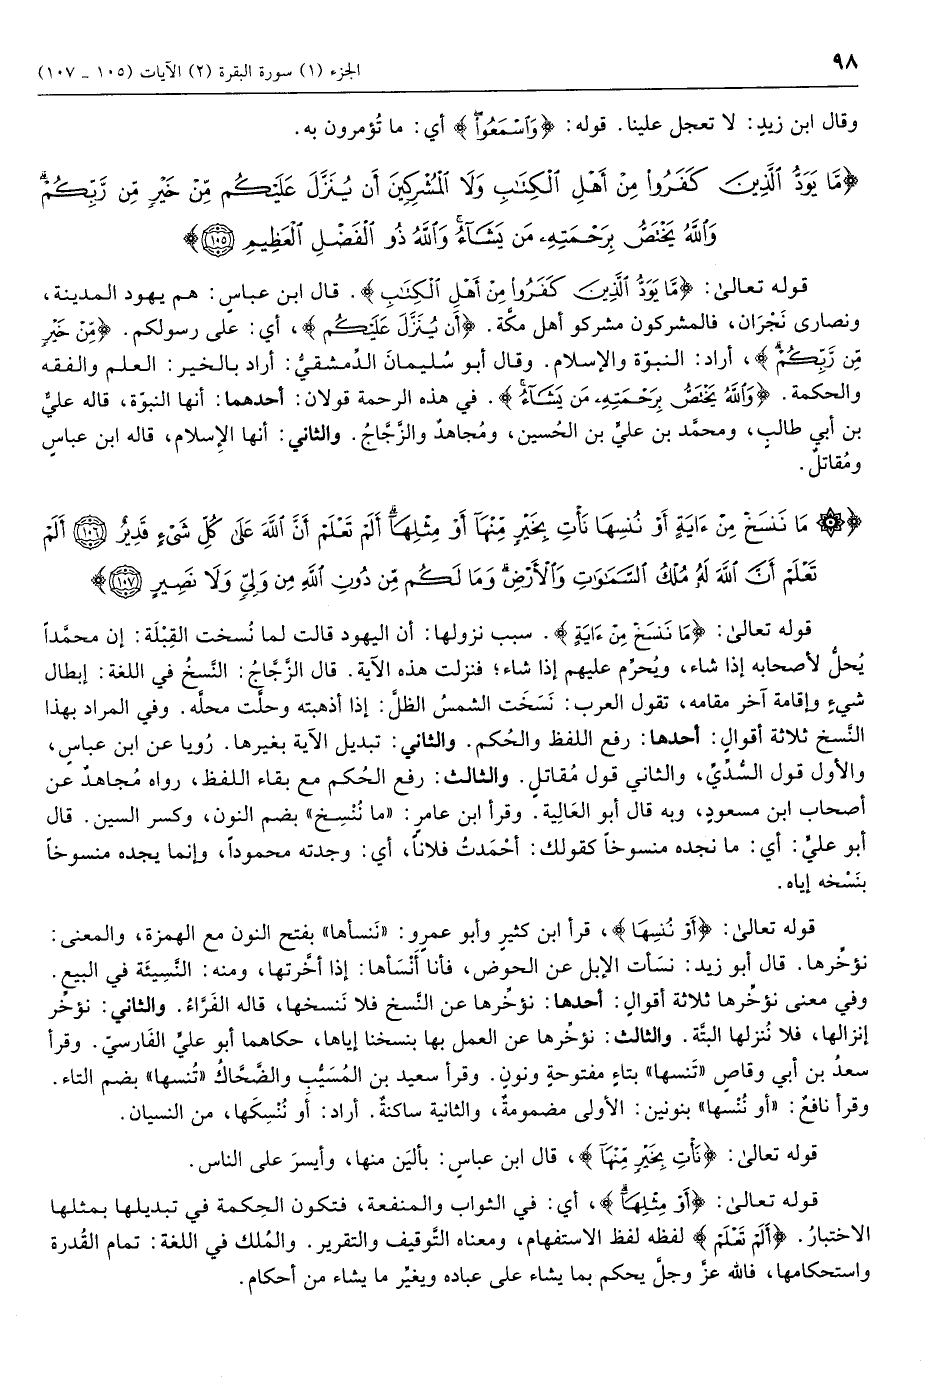 ٩٨
الجزء (١) سورة البقرة (٢) الآيات (١٠٥ ـ ١٠٧)
وقال ابن زيدٍ: لا تعجل علينا. قوله: ﴿وَٱسْمَعُواْ﴾ أي: ما تُؤمرون به.
﴿مَّا يَوَدُّ ٱلَّذِينَ كَفَرُواْ مِنْ أَهْلِ ٱلْكِتَٰبِ وَلَا ٱلْمُشْرِكِينَ أَن يُنَزَّلَ عَلَيْكُم مِّنْ خَيْرٍ مِّن رَّبِّكُمْۗ
وَٱللَّهُ يَخْتَصُّ بِرَحْمَتِهِۦ مَن يَشَآءُۚ وَٱللَّهُ ذُو ٱلْفَضْلِ ٱلْعَظِيمِ ١٠٥﴾
قوله تعالىٰ: ﴿مَّا يَوَدُّ ٱلَّذِينَ كَفَرُواْ مِنْ أَهْلِ ٱلْكِتَٰبِ﴾. قال ابن عباسٍ: هم يهود المدينة،
ونصارى نَجْرَان، فالمشركون مشركو أهل مكّة. ﴿أَن يُنَزَّلَ عَلَيْكُم﴾، أي: على رسولكم. ﴿مِّنْ خَيْرٍ
مِّن رَّبِّكُمْۗ﴾، أراد: النبوّة والإسلام. وقال أبو سُليمانَ الدِّمشقيُّ: أراد بالخير: العلم والفقه
والحكمة. ﴿وَٱللَّهُ يَخْتَصُّ بِرَحْمَتِهِۦ مَن يَشَآءُۚ﴾. في هذه الرحمة قولان: أحدهما: أنها النبوّة، قاله عليُّ
بن أبي طالبٍ، ومحمَّد بن عليِّ بن الحُسين، ومُجاهدٌ والزَّجَّاجُ. والثاني: أنها الإِسلام، قاله ابن عباسٍ
ومُقاتلٌ.
﴿۞ مَا نَنسَخْ مِنْ ءَايَةٍ أَوْ نُنسِهَا نَأْتِ بِخَيْرٍ مِّنْهَآ أَوْ مِثْلِهَآۗ أَلَمْ تَعْلَمْ أَنَّ ٱللَّهَ عَلَىٰ كُلِّ شَىْءٍ قَدِيرٌ ١٠٦ أَلَمْ
تَعْلَمْ أَنَّ ٱللَّهَ لَهُۥ مُلْكُ ٱلسَّمَٰوَٰتِ وَٱلْأَرْضِۗ وَمَا لَكُم مِّن دُونِ ٱللَّهِ مِن وَلِىٍّ وَلَا نَصِيرٍ ١٠٧﴾
قوله تعالىٰ: ﴿مَا نَنسَخْ مِنْ ءَايَةٍ﴾. سبب نزولها: أن اليهود قالت لما نُسخت القِبْلَة: إن محمَّداً
يُحلُّ لأصحابه إذا شاء، ويُحرِّم عليهم إذا شاء؛ فنزلت هذه الآية. قال الزَّجَّاجُ: النَّسخُ في اللغة: إبطال
شيءٍ وإقامة آخر مقامه، تقول العرب: نَسَخَت الشمسُ الظلَّ: إذا أذهبته وحلَّت محلَّه. وفي المراد بهذا
النَّسخ ثلاثة أقوالٍ: أحدها: رفع اللفظ والحُكم. والثاني: تبديل الآية بغيرها. رُويا عن ابن عباسٍ،
والأول قول السُّدِّيِّ، والثاني قول مُقاتلٍ. والثالث: رفع الحُكم مع بقاء اللفظ، رواه مُجاهدٌ عن
أصحاب ابن مسعودٍ، وبه قال أبو العَالية. وقرأ ابن عامرٍ: «ما نُنْسِخ» بضم النون، وكسر السين. قال
أبو عليٍّ: أي: ما نجده منسوخاً كقولك: أحْمَدتُ فلاناً، أي: وجدته محموداً، وإنما يجده منسوخاً
بنَسْخه إياه.
قوله تعالىٰ: ﴿أَوْ نُنسِهَا﴾، قرأ ابن كثيرٍ وأبو عمرٍو: «نَنسأها» بفتح النون مع الهمزة، والمعنى:
نؤخِّرها. قال أبو زيد: نسَأت الإبل عن الحوض، فأنا أَنْسَأها: إذا أخَّرتها، ومنه: النَّسِيئَة في البيع.
وفي معنى نؤخِّرها ثلاثة أقوالٍ: أحدها: نؤخِّرها عن النَّسخ فلا نَنسخها، قاله الفَرَّاءُ. والثاني: نؤخِّر
إنزالها، فلا نُنزلها البتَّة. والثالث: نؤخِّرها عن العمل بها بنسخنا إياها، حكاهما أبو عليٍّ الفَارسيّ. وقرأ
سعدُ بن أبي وقاصٍ «تَنسها» بتاءٍ مفتوحةٍ ونونٍ. وقرأ سعيد بن المُسَيَّبِ والضَّحَّاكُ «تُنسها» بضم التاء.
وقرأ نافعٌ: «أو نُنْسها» بنونين: الأولى مضمومةٌ، والثانية ساكنةٌ. أراد: أو نُنْسِكَها، من النسيان.
قوله تعالىٰ: ﴿نَأْتِ بِخَيْرٍ مِّنْهَآ﴾، قال ابن عباسٍ: بأليَن منها، وأيسرَ على الناس.
قوله تعالىٰ: ﴿أَوْ مِثْلِهَآۗ﴾، أي: في الثواب والمنفعة، فتكون الحِكمة في تبديلها بمثلها
الاختبارُ. ﴿أَلَمْ تَعْلَمْ﴾ لفظه لفظ الاستفهام، ومعناه التَّوقيف والتقرير. والمُلك في اللغة: تمام القُدرة
واستحكامها، فالله عزَّ وجلَّ يحكم بما يشاء على عباده ويغيِّر ما يشاء من أحكام.